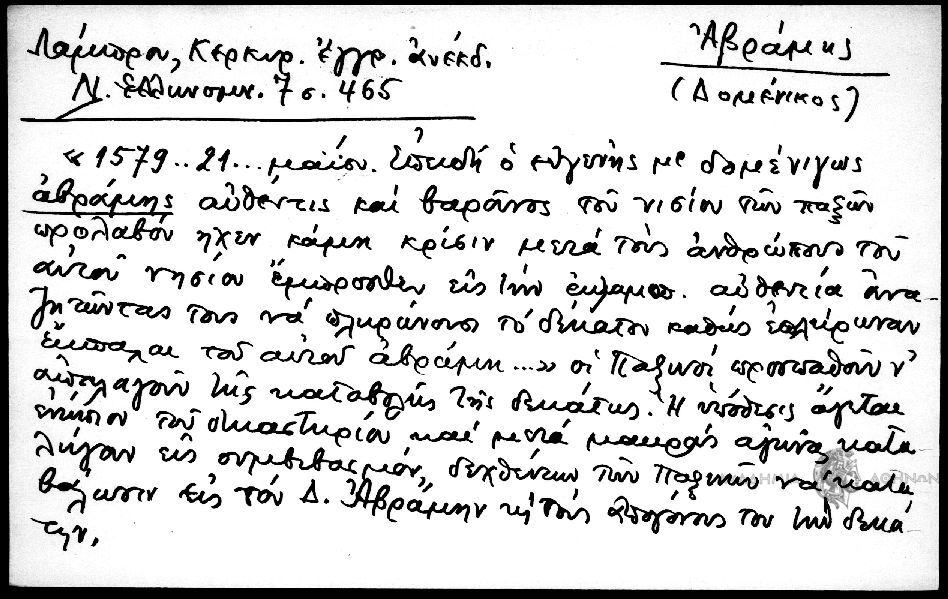 Λάμπρου, Κερκυρ. ἔγγρ. ἀνέκδ.
Ν. Ἑλληνομν. 7 σ. 465
Ἀβράμης
(Δομένικος)
« 1579 .. 21 ... μαΐου. Ἐπειδή ὁ εὐγενής μσ δομένιγως
ἀβράμης αὐθέντις καί βαρόνος τοῦ νισίου τῶν παξῶν
προλαβόν ηχεν κάμη κρίσιν μετά τούς ἀνθρώπους τοῦ
αὐτοῦ νησίου ἔμπροσθεν εἰς τήν ἐκλαμπ. αὐθεντία ἀνα
ζητῶντας τους νά πληρώνουσι τό δέκατον καθώς ἐπλήρωναν
ἔκπαλαι τοῦ αὐτοῦ ἀβράμη ... » οἱ Παξινοί προσπαθοῦν ν'
ἀπαλλαγοῦν τῆς καταβολῆς τῆς δεκάτης. Ἡ ὑπόθεσις ἄγεται
ἐνώπιον τοῦ δικαστηρίου καί μετά μακρούς ἀγῶνας κατα
λήγουν εἰς συμβιβασμόν, δεχθέντων τῶν Παξινῶν νά κατα
βάλωσιν εἰς τόν Δ. Ἀβράμην κ τούς ἀπογόνους του τήν δεκά
την.
ΑΘΗΝΩΝ